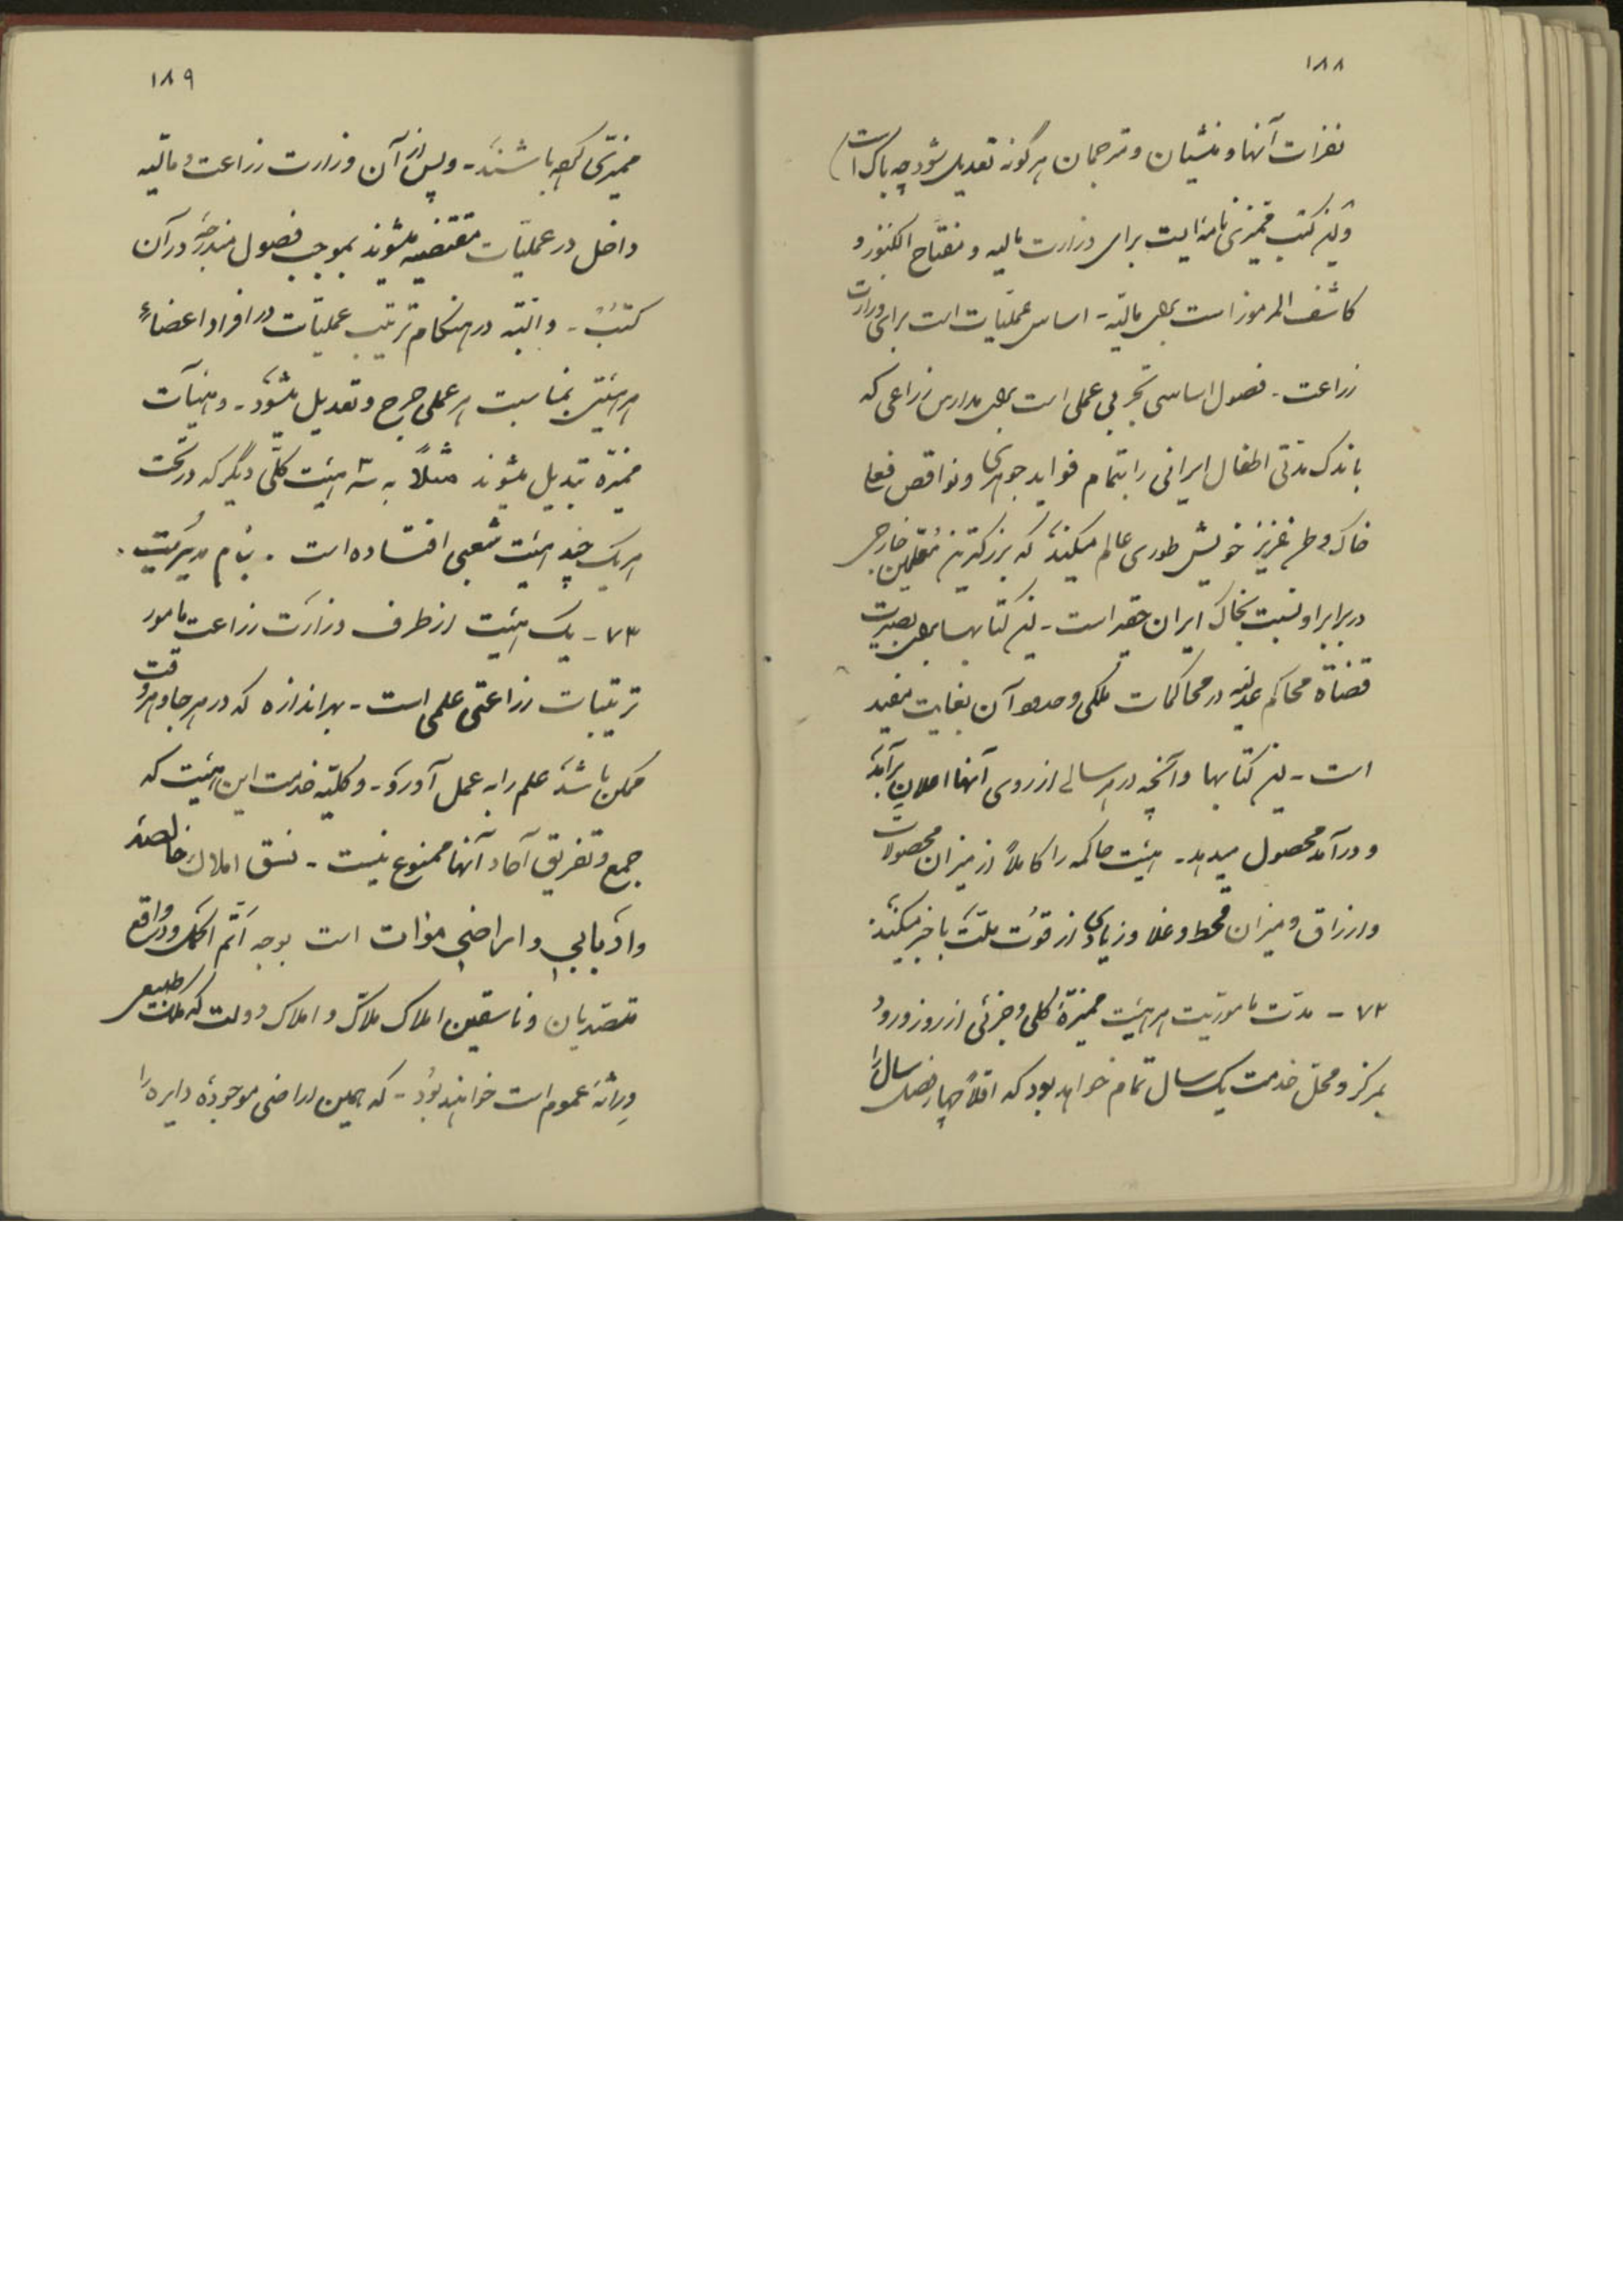 ۱۸۸
نفرات آنها و منشیان و مترجمان هرگونه تعدیل شود چه باک است)
و این کتب ممیزی نامه ایست برای وزارت مالیه و مفتاح الکنوز و
کاشف المرموز است برای مالیه - اساس عملیات است برای وزارت
زراعت - فصول اساسی تجربی عملی است برای مدارس زراعی که
باندک مدتی اطفال ایرانی را بتمام فواید جوهری و نواقص فعلی
خاک وطن عزیز خویش طوری عالم میکند که بزرگترین معلمین خارجی
در برابر او نسبت بخاک ایران حقیر است - این کتابها برای بصیرت
قضاة محاکم عدلیه در محاکمات ملکی و حدود آن بغایت مفید
است - این کتابها و آنچه در هر سالی از روی آنها اعلان برآمد
و درآمد محصول میدهد - هیئت حاکمه را کاملاً از میزان محصولات
و ارزاق و میزان قحط و غلا و زیادی از قوت ملت با خبر میکند
۷۲ - مدت ماموریت هر هیئت ممیزۀ کلی و جزئی از روز ورود
بمرکز و محل خدمت یک سال تمام خواهد بود که اقلاً چهار فصل سال را
۱۸۹
ممیزی کرده باشند - و پس از آن وزارت زراعت و مالیه
داخل در عملیات مقتضیه میشوند بموجب فصول مندرجه در آن
کتب - و البته در هنکام ترتیب عملیات در افراد اعضاء
هر هیئتی بمناسبت هر عملی جرح و تعدیل میشود - و هیآت
ممیزه تبدیل میشوند مثلاً به سه هیئت کلّی دیگر که در تحت
هر یک چند هیئت شعبی افتاده است . بنام مدیریت .
۷۳ - یک هیئت از طرف وزارت زراعت مامور
ترتیبات زراعتی علمی است - بهر اندازه که در هر جا و هر وقت
ممکن باشد علم را به عمل آورد - و کلیه خدمت این هیئت که
جمع و تفریق آحاد آنها ممنوع نیست - نسق املاک خالصه
و ادبابی و اراضی موات است بوجه اتم اکمل و در واقع
متصدیان و ناسقین املاک ملاّک و املاک دولت که ملک طبیعی
وراثۀ عموم است خواهند بود - که همین اراضی موجودۀ دایره را